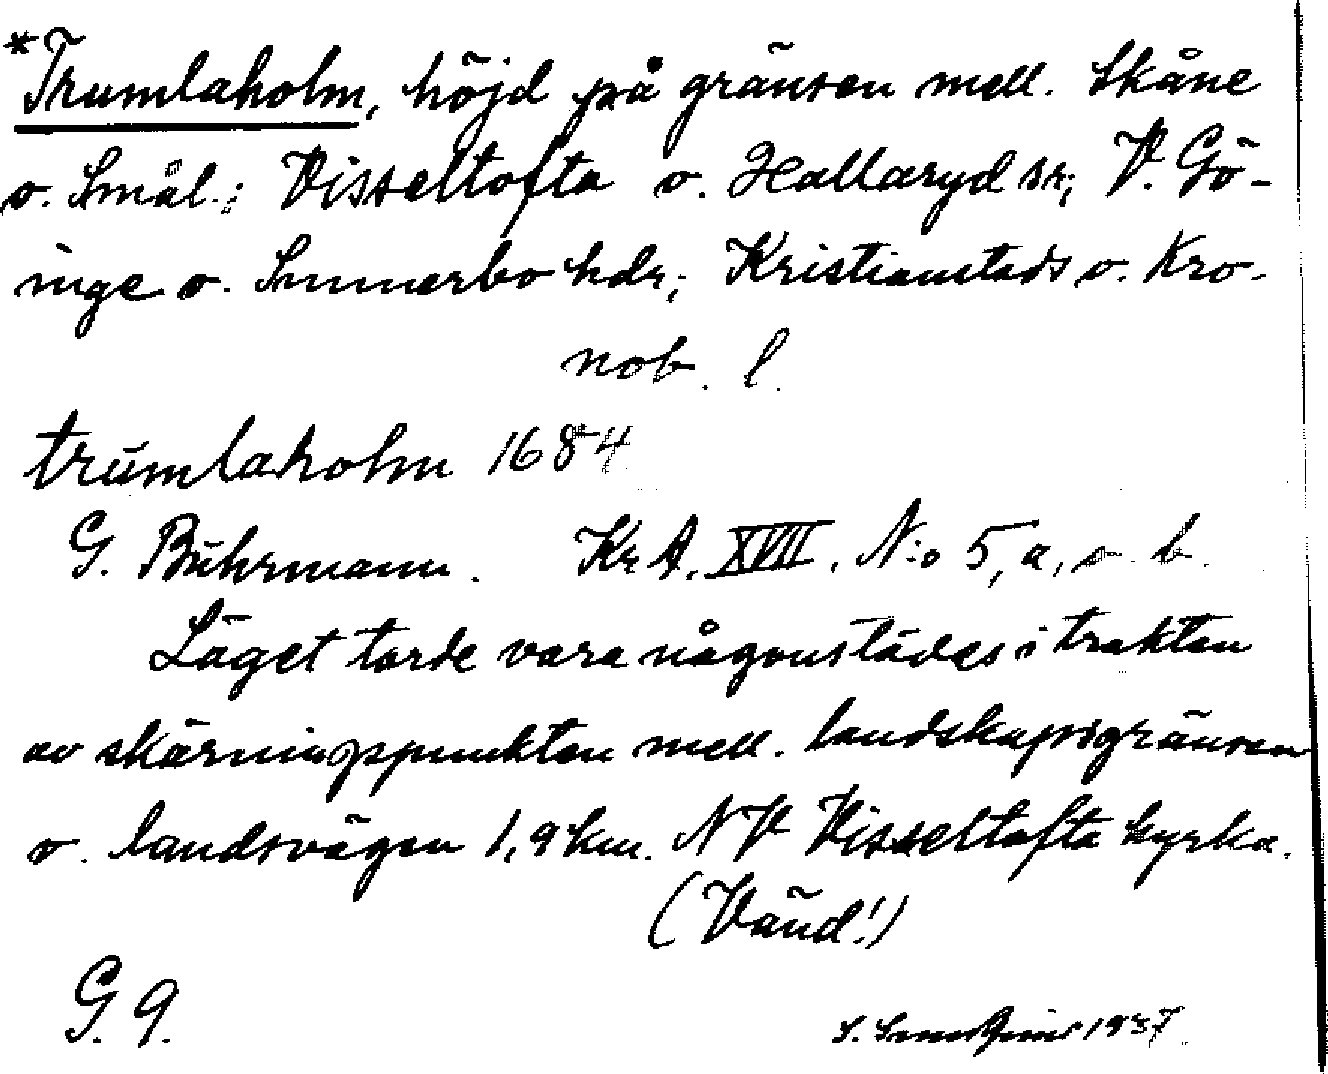 *Trumlaholm, höjd på gränsen mell. Skåne
o. Smål.; Visseltofta o. Hallaryd sr; V. Gö-
inge o. Sunnerbo hdr; Kristianstads o. Kro-
nob. l.
trumlaholm 1684
G. Buhrmann. KrA. XVII. N:o 5, a, o. b.
Läget torde vara någonstädes i trakten
av skärningspunkten mell. landskapsgränsen
o. landsvägen 1,9 km. NV Visseltofta kyrka.
(Vänd!)
G. 9.
S. 1937